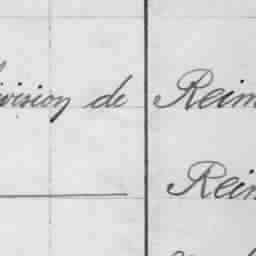 ivision de Reim
Rein